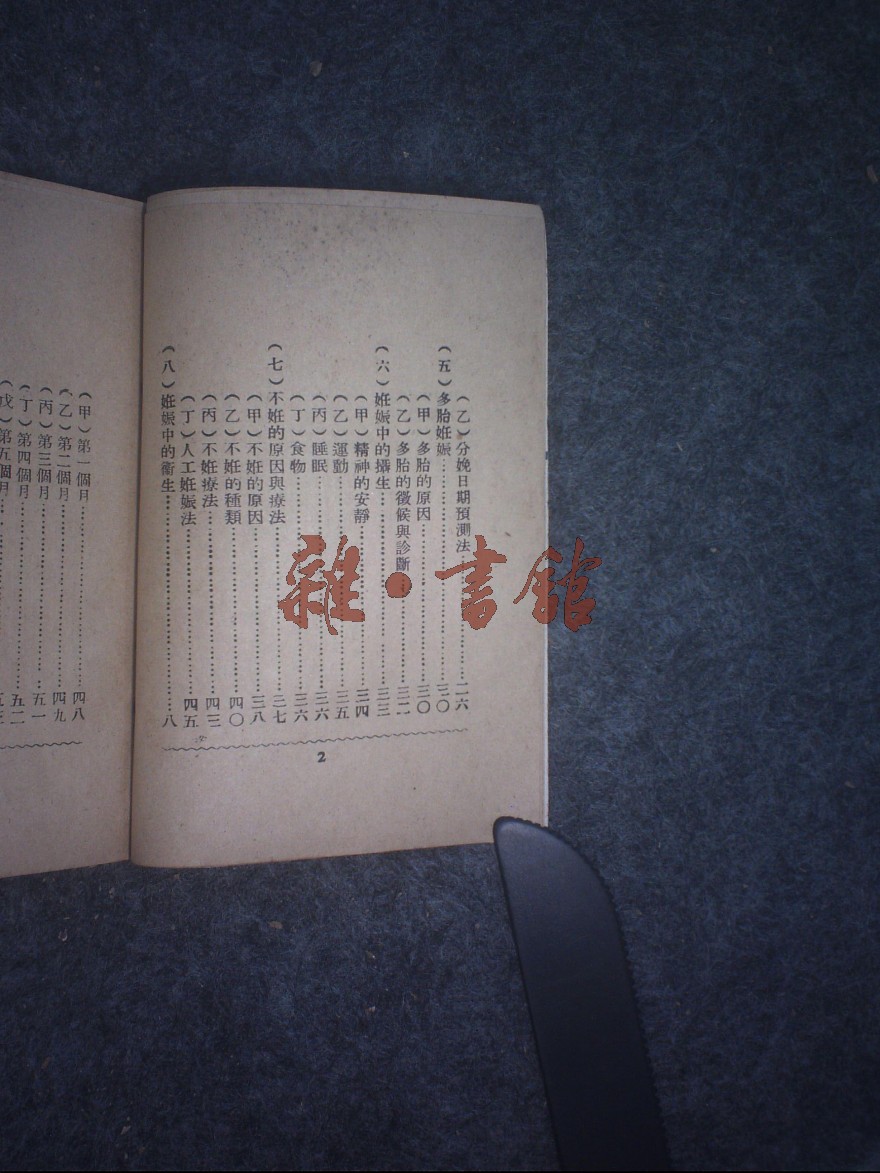 (乙)分娩日期預測法……二六
(五)多胎妊娠……三〇
(甲)多胎的原因……三〇
(乙)多胎的徵候與診斷……三二
(六)妊娠中的攝生……三三
(甲)精神的安靜……三四
(乙)運動……三五
(丙)睡眠……三六
(丁)食物……三六
(七)不妊的原因與療法……三七
(甲)不妊的原因……三八
(乙)不妊的種類……四〇
(丙)不妊療法……四三
(丁)人工妊娠法……四五
(八)妊娠中的衞生……八
2
(甲)第一個月……四八
(乙)第二個月……四九
(丙)第三個月……五一
(丁)第四個月……五二
(戊)第五個月……五三
雜·書館